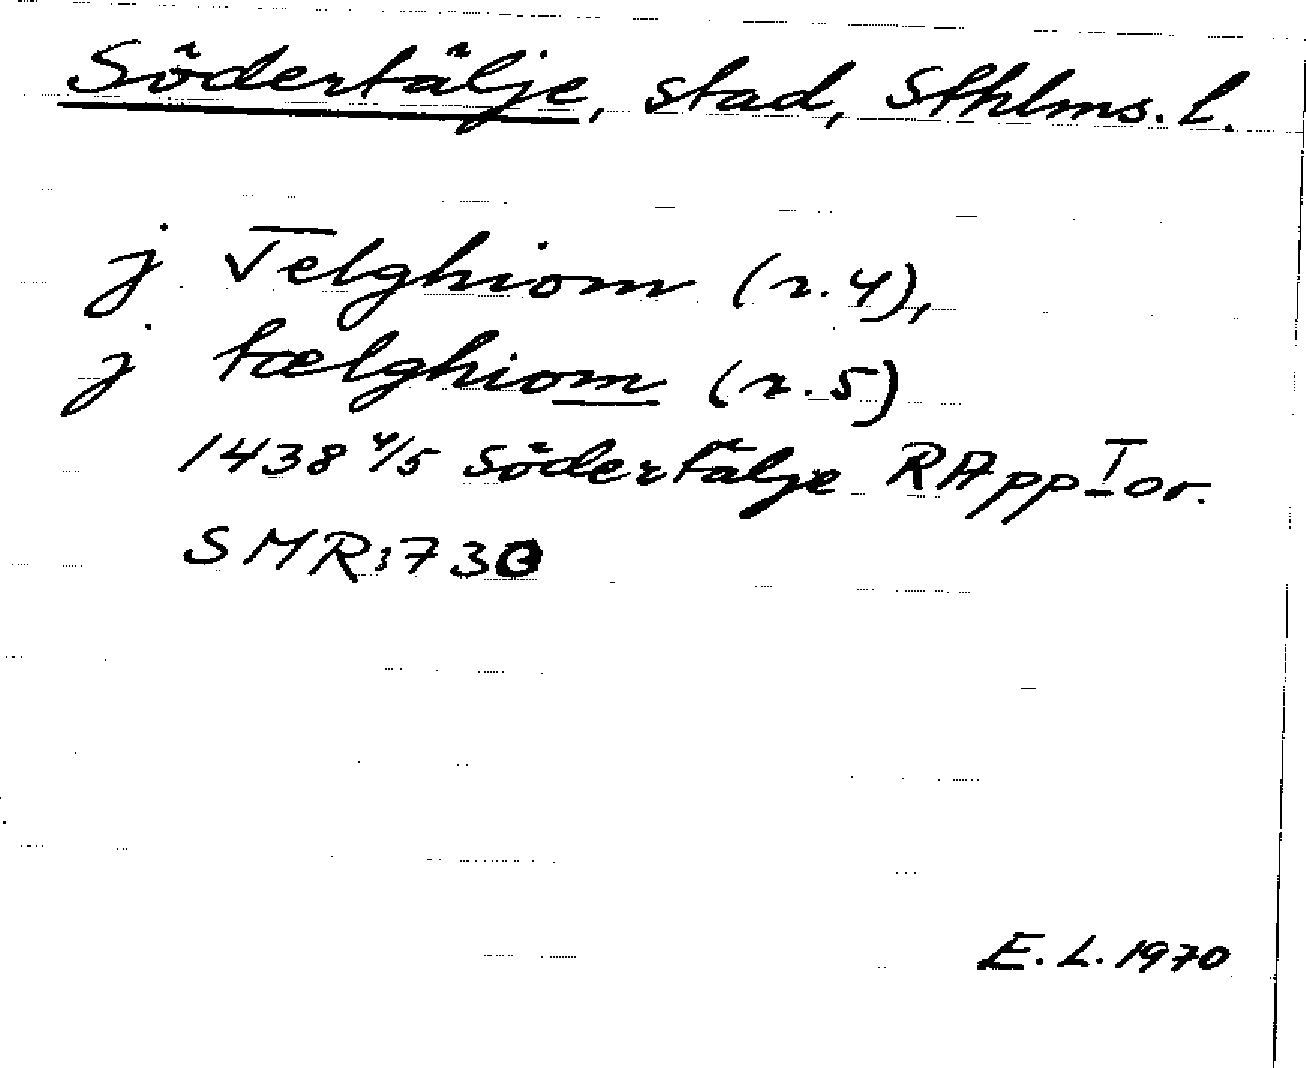 Södertälje, stad, Sthlms. l.
j Telghiom (r. 4),
j tælghiom (r. 5)
1438 4/5 Södertälje RApp I or.
SMR: 730
E. L. 1970